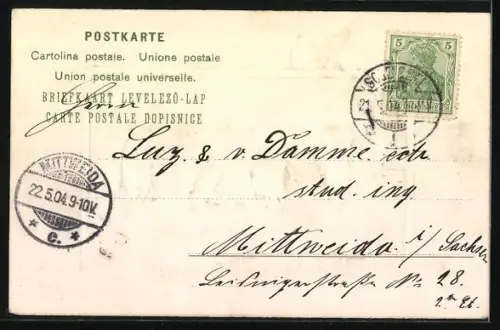 POSTKARTE
Cartolina postale. Unione postale
Union postale universelle.
BRIEFKAART LEVELEZŐ-LAP
CARTE POSTALE DOPISNICE
5 5
21.5.04
Herrn
Luz. & v. Damme
stud. ing.
Mittweida i/ Sachsen
Leisnigerstraße No 28.
MITTWEIDA
22.5.04.9-10V.
* c. *